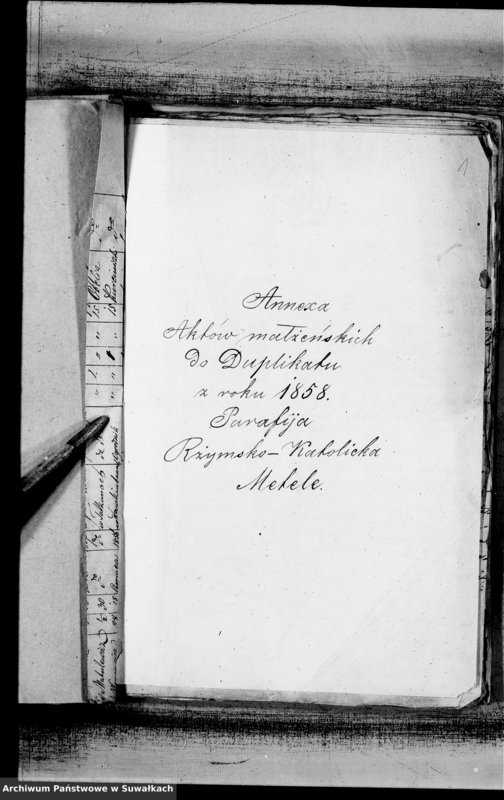 1
Annexa
Aktów małżeńskich
do Duplikatu
z roku 1858.
Parafija
Rzymsko-Katolicka
Metele.
Archiwum Państwowe w Suwałkach